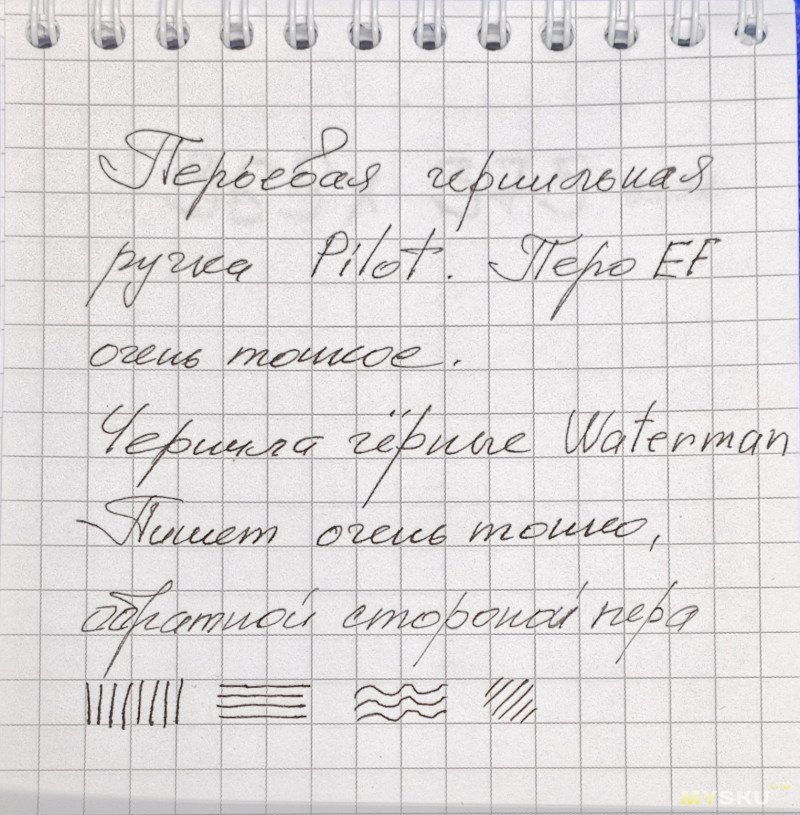 Перьевая чернильная
ручка Pilot. Перо EF
очень тонкое.
Чернила чёрные Waterman
Пишет очень тонко,
обратной стороной пера
MYSKU